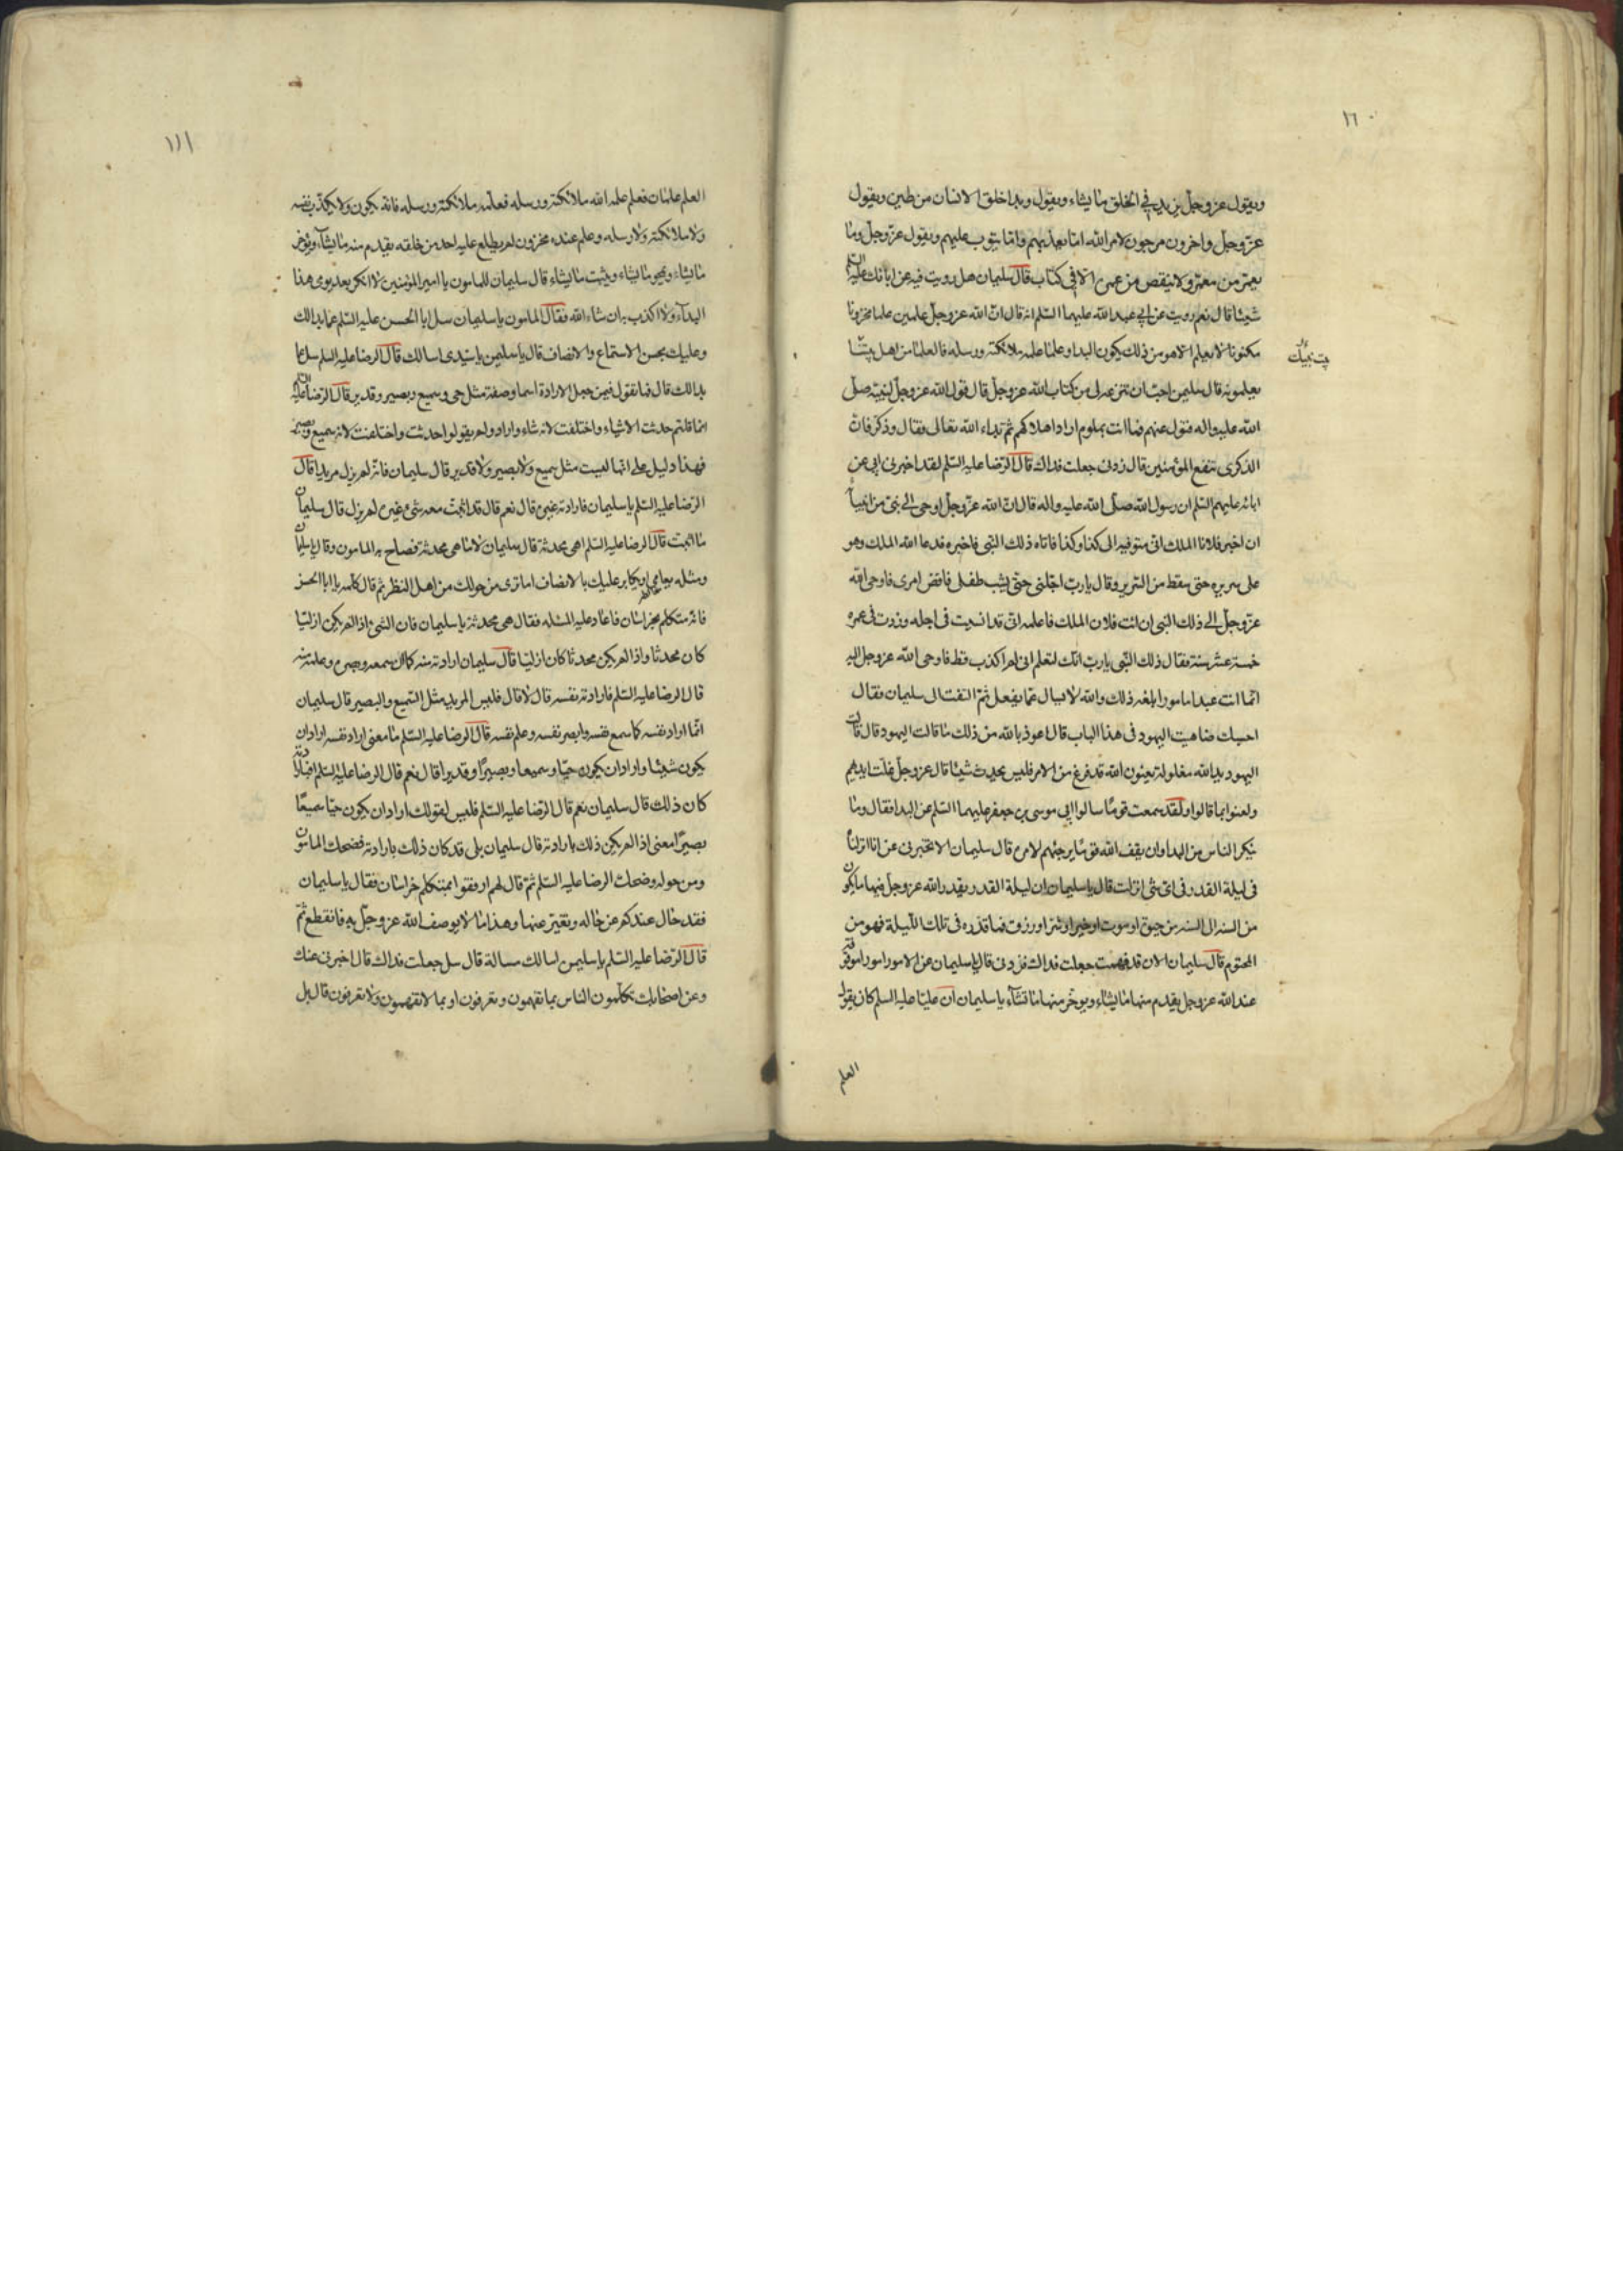 ١٦٠
ويقول عز وجل يزيد في الخلق ما يشاء ويقول وبدا خلق الانسان من طين ويقول
عز وجل واخرون مرجون لامر الله اما يعذبهم واما يتوب عليهم ويقول عز وجل وما
يعمر من معمر ولا ينقص من عمره الا في كتاب قال سليمان هل رويت فيه عن ابائك عليهم السلم
شيئا قال نعم رويت عن ابي عبد الله عليهما السلم انه قال ان الله عز وجل علمين علما مخزونا
مكنونا لا يعلمه الا هو من ذلك يكون البدا وعلما علمه ملائكته ورسله فالعلما من اهل بيت
بيت نبيك
يعلمونه قال سليمن احب ان تنزعه لي من كتاب الله عز وجل قال قول الله عز وجل لنبيه صلى
الله عليه واله فتول عنهم فما انت بملوم اراد اهلاكهم ثم بداء الله تعالى فقال وذكر فان
الذكرى تنفع المؤمنين قال زدني جعلت فداك قال الرضا عليه السلم لقد اخبرني ابي عن
ابائه عليهم السلم ان رسول الله صلى الله عليه واله قال ان الله عز وجل اوحى الى نبي من انبيا
ان اخبر فلانا الملك اني متوفيه الى كذا وكذا فاتاه ذلك النبي فاخبره فدعا الله الملك وهو
على سريره حتى سقط من السرير وقال يا رب اجلني حتى يشب طفلي فاقض امري فاوحى الله
عز وجل الى ذلك النبي ان ائت فلان الملك فاعلمه اني قد انسيت في اجله وزدت في عمره
خمسة عشر سنة فقال ذلك النبي يا رب انك لتعلم اني لم اكذب قط فاوحى الله عز وجل اليه
انما انت عبد مامور ابلغه ذلك والله لا يسال عما يفعل ثم التفت الى سليمان فقال
احسبك ضاهيت اليهود في هذا الباب قال اعوذ بالله من ذلك ما قالت اليهود قال قالت
اليهود يد الله مغلولة يعنون الله قد فرغ من الامر فليس يحدث شيئا قال عز وجل غلت ايديهم
ولعنوا بما قالوا ولقد سمعت قوما سالوا ابي موسى بن جعفر عليهما السلم عن البدا فقال وما
ينكر الناس من البدا وان يقف الله قوما يرجئهم لامره قال سليمان الا تخبرني عن انا انزلناه
في ليلة القدر في اي شئ انزلت قال يا سليمان ان ليلة القدر يقدر الله عز وجل فيها ما يكون
من السنه الى السنه من حيوة او موت او خير او شر او رزق فما قدره في تلك الليلة فهو من
المحتوم قال سليمان الان قد فهمت جعلت فداك فزدني قال يا سليمان ان من الامور امورا موقوفة
عند الله عز وجل يقدم منها ما يشاء ويوخر منها ما تشاء يا سليمان ان عليا عليه السلم كان يقول
العلم
١١١
العلم علمان فعلم علمه الله ملائكته ورسله فعلمه ملائكته ورسله فانه يكون ولا يكذب نفسه
ولا ملائكته ولا رسله وعلم عنده مخزون لم يطلع عليه احد من خلقه يقدم منه ما يشاء ويوخر
ما يشاء ويمحو ما يشاء ويثبت ما يشاء قال سليمان للمامون يا امير المؤمنين لا انكر بعد يومي هذا
البداء ولا اكذب به ان شاء الله فقال المامون يا سليمان سل ابا الحسن عليه السلم عما بدا لك
وعليك بحسن الاستماع والانصاف قال يا سليمن يا سيدي اسالك قال الرضا عليه السلم سل عما
بدا لك قال فما تقول فيمن جعل الارادة اسما وصفة مثل حي وسميع وبصير وقدير قال الرضا عليه السلم
انما قلتم حدثت الاشياء واختلفت لانه شاء واراد ولم يقولوا حدثت واختلفت لانه سميع وبصير
فهذا دليل على انها ليست مثل سميع ولا بصير ولا قدير قال سليمان فانه لم يزل مريدا قال
الرضا عليه السلم يا سليمان فارادته غيره قال نعم قال قد اثبت معه شئ غيره لم يزل قال سليمان
ما اثبت قال الرضا عليه السلم اهي محدثة قال سليمان لا ما هي محدثة فصاح به المامون وقال يا سليمان
ومثله يعايا ويكابر عليك بالانصاف اما ترى من حولك من اهل النظر ثم قال كلمه يا ابا الحسن
فانه متكلم بخراسان فاعاد عليه المسئله فقال هي محدثة يا سليمان فان الشئ اذا لم يكن ازليا
كان محدثا واذا لم يكن محدثا كان ازليا قال سليمان ارادته منه كما ان سمعه وبصره وعلمه منه
قال الرضا عليه السلم فارادته نفسه قال لا قال فليس المريد مثل السميع والبصير قال سليمان
انما اراد نفسه كما سمع نفسه وابصر نفسه وعلم نفسه قال الرضا عليه السلم ما معنى اراد نفسه اراد ان
يكون شيئا واراد ان يكون حيا وسميعا وبصيرا وقديرا قال نعم قال الرضا عليه السلم افبارادته
كان ذلك قال سليمان نعم قال الرضا عليه السلم فليس لقولك اراد ان يكون حيا سميعا
بصيرا معنى اذا لم يكن ذلك بارادته قال سليمان بلى قد كان ذلك بارادته فضحك المامون
ومن حوله وضحك الرضا عليه السلم ثم قال لهم ارفقوا بمتكلم خراسان فقال يا سليمان
فقد حال عندكم عن حاله وتغير عنها وهذا ما لا يوصف الله عز وجل به فانقطع ثم
قال الرضا عليه السلم يا سليمن اسالك مسالة قال سل جعلت فداك قال اخبرني عنك
وعن اصحابك تكلمون الناس بما تفهمون وتعرفون او بما لا تفهمون ولا تعرفون قال بل